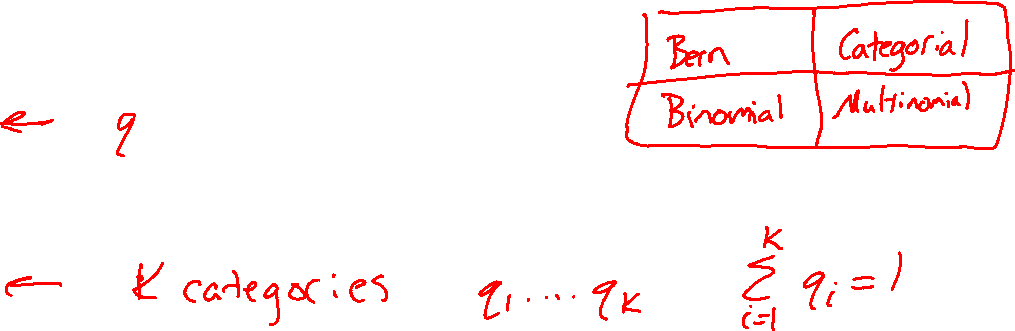 Bern Categorial
Binomial Multinomial
← q
← K categories q₁ .... qₖ ∑ᵢ₌₁ᴷ qᵢ = 1